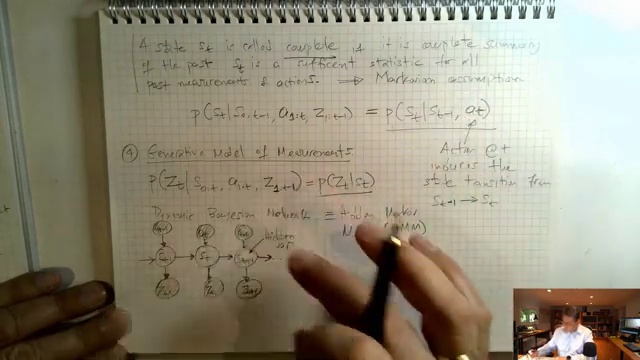 A state St is called complete if it is complete summary
of the past St is a sufficient statistic for all
past measurements & actions. → Markovian assumption
p(St|S0:t-1, a1:t, Z1:t-1) = p(St|St-1, at)
Action @ t
induces the
state transition from
St-1 → St
④ Generative Model of Measurements
p(Zt|S0:t, a1:t, Z1:t-1) = p(Zt|St)
Dynamic Bayesian Network ≡ Hidden Markov
hidden
St-1 St St+1